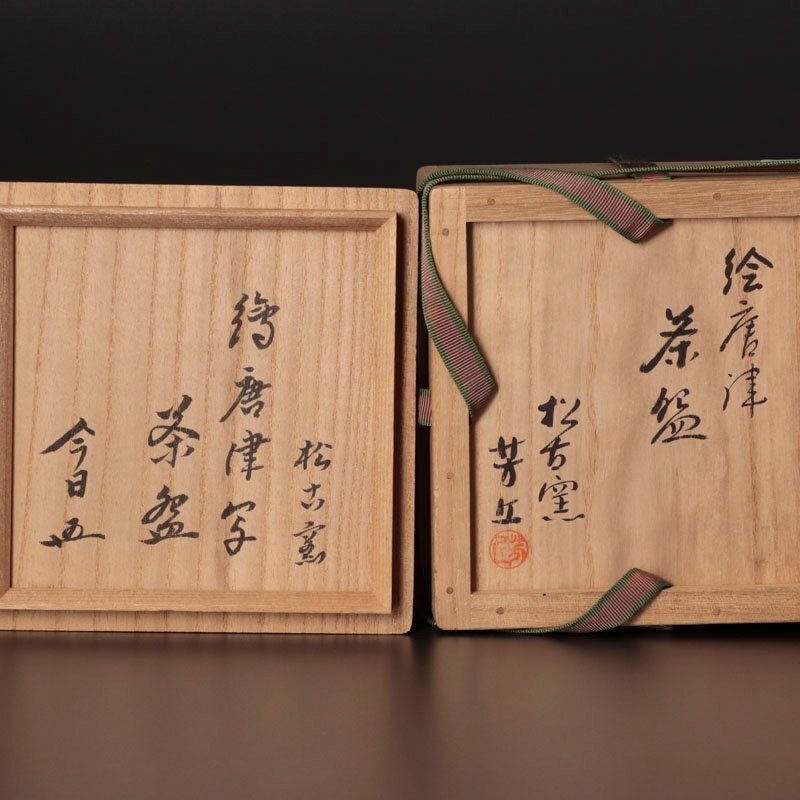 松古窯
繪唐津写
茶盌
今日
絵唐津
茶盌
松古窯
芳